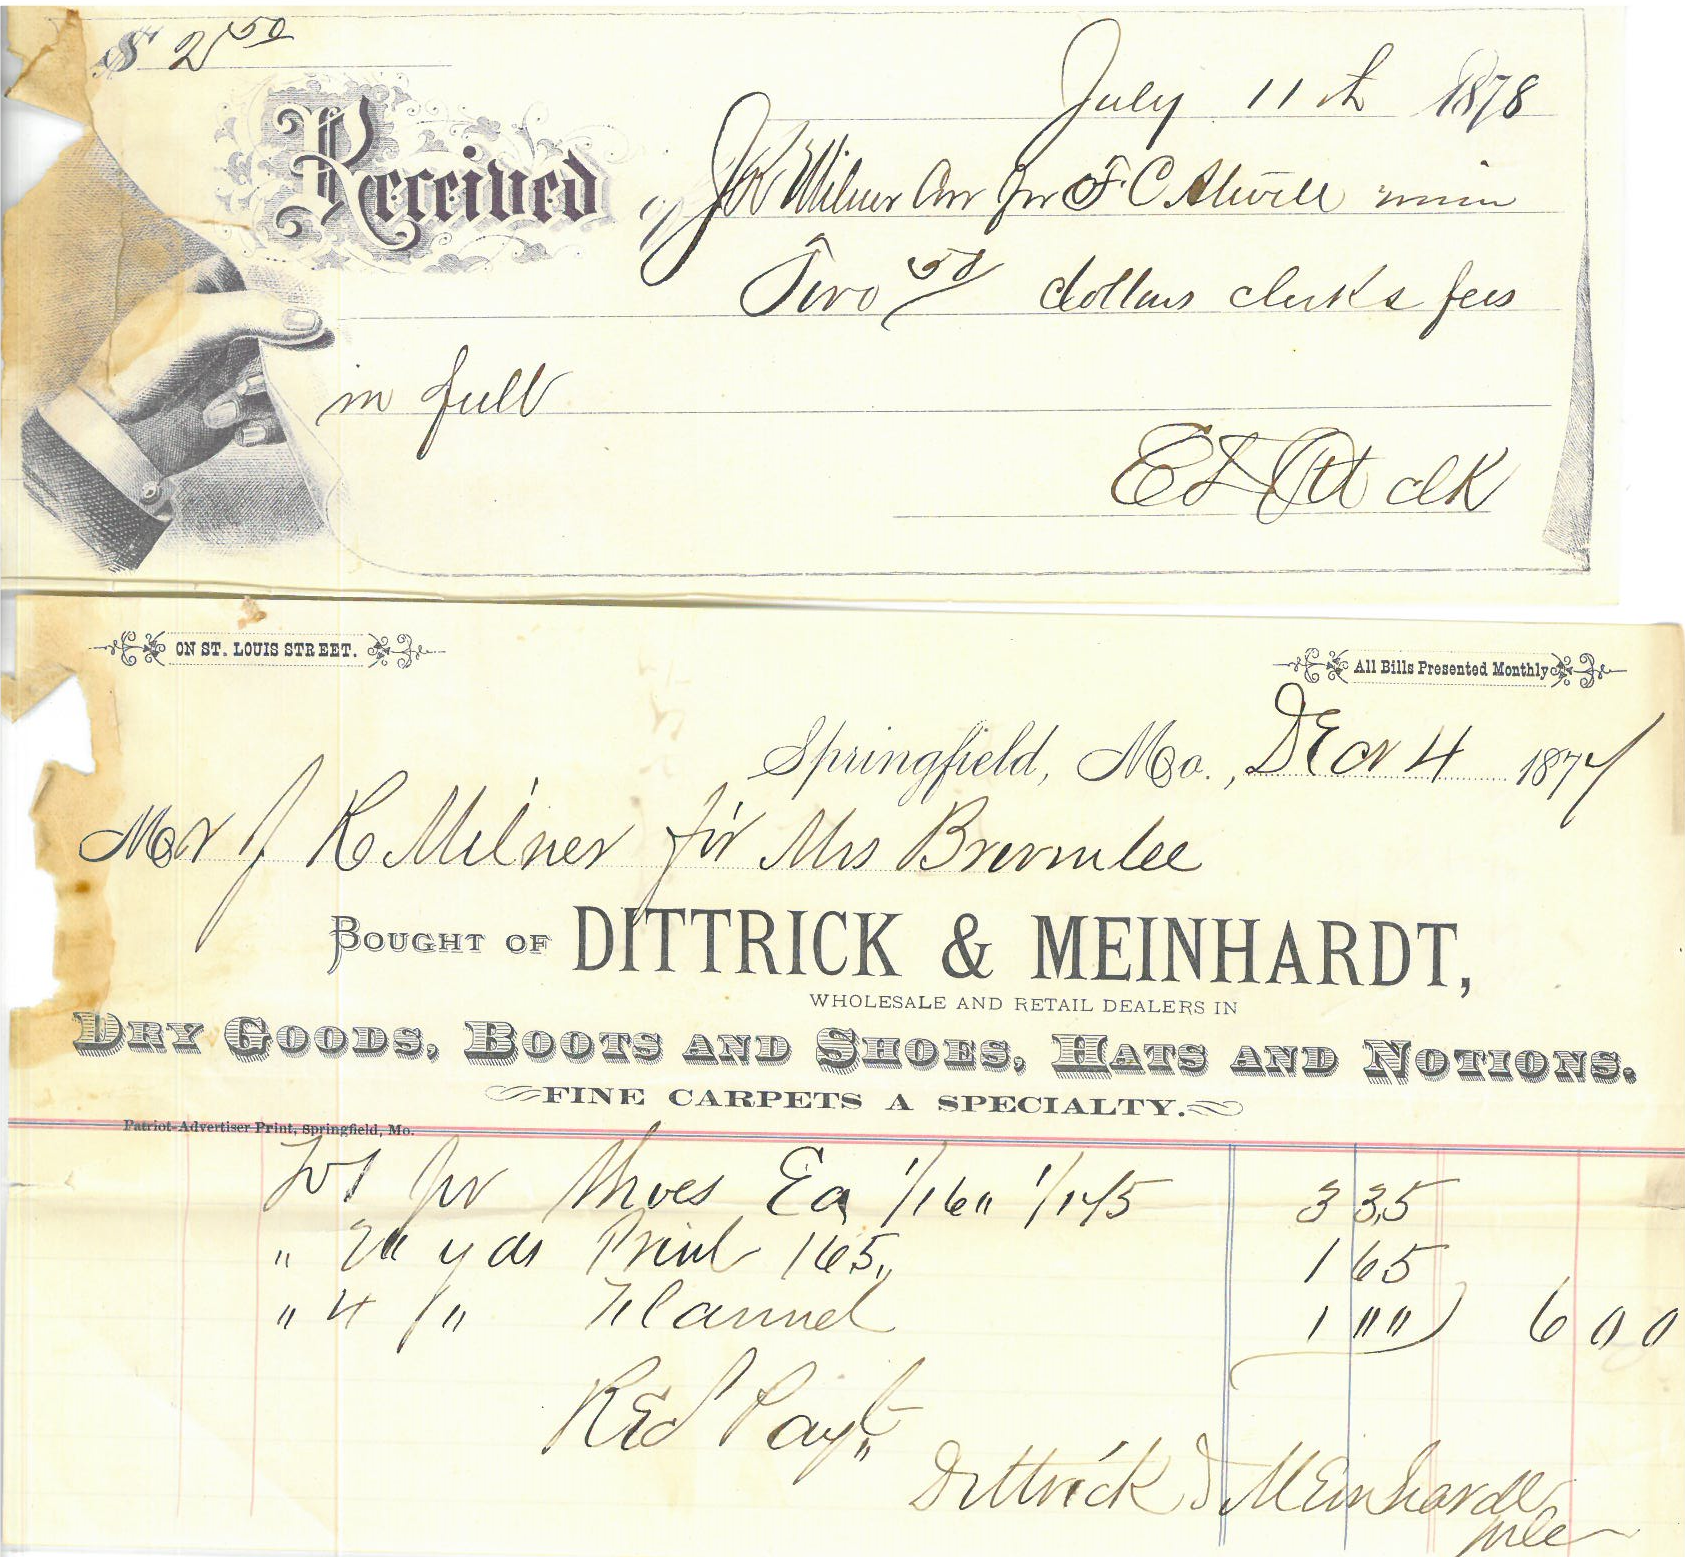 $ 2 50
July 11th 1878
Received of J K Milner Cur for F. C. Atwill minor
Two 50 dollars clerks fees
in full
E D Ott clk
ON ST. LOUIS STREET.
All Bills Presented Monthly
Springfield, Mo., Dec 4 1877
Mr J K Milner for Mrs Brownlee
BOUGHT OF DITTRICK & MEINHARDT,
WHOLESALE AND RETAIL DEALERS IN
DRY GOODS, BOOTS AND SHOES, HATS AND NOTIONS.
FINE CARPETS A SPECIALTY.
Patriot-Advertiser Print, Springfield, Mo.
pr Shoes Ea 3 35
" yds Print 165 1 65
" 4 " Flannel 1 "" 6 00
Recd Payt
Dittrick & Meinhardt